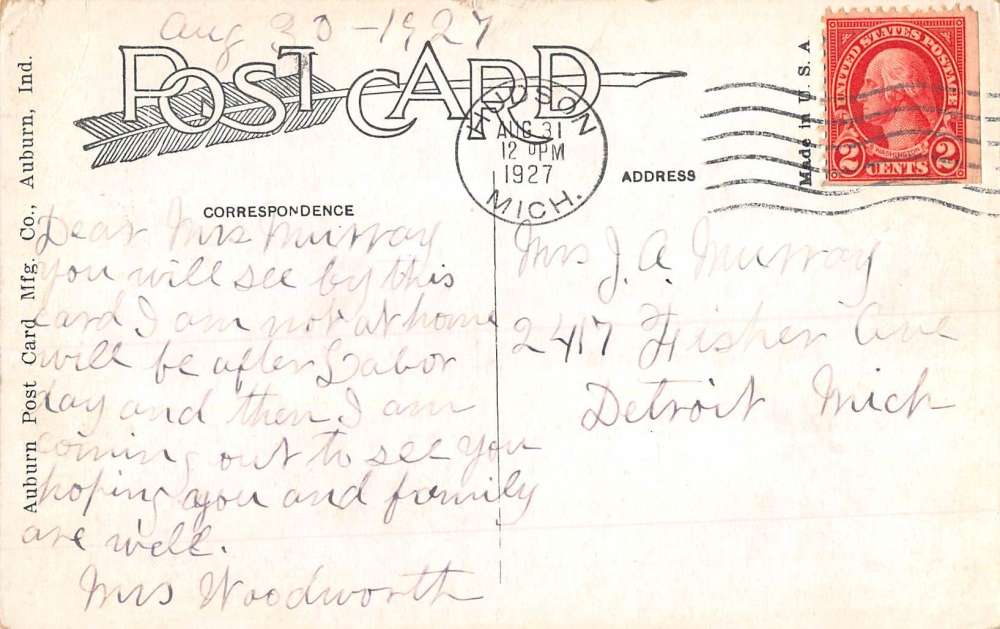 Aug 30 - 1927
POST CARD
HUDSON
AUG 31
12 PM
1927
MICH.
UNITED STATES POSTAGE
WASHINGTON
2 CENTS 2
Made in U. S. A
Auburn Post Card Mfg. Co., Auburn, Ind.
CORRESPONDENCE
ADDRESS
Dear Mrs Murray
you will see by this
card I am not at home
will be after Labor
day and then I am
coming out to see you
hoping you and family
are well.
Mrs Woodworth
Mrs J. A. Murray
2417 Fisher Ave
Detroit Mich